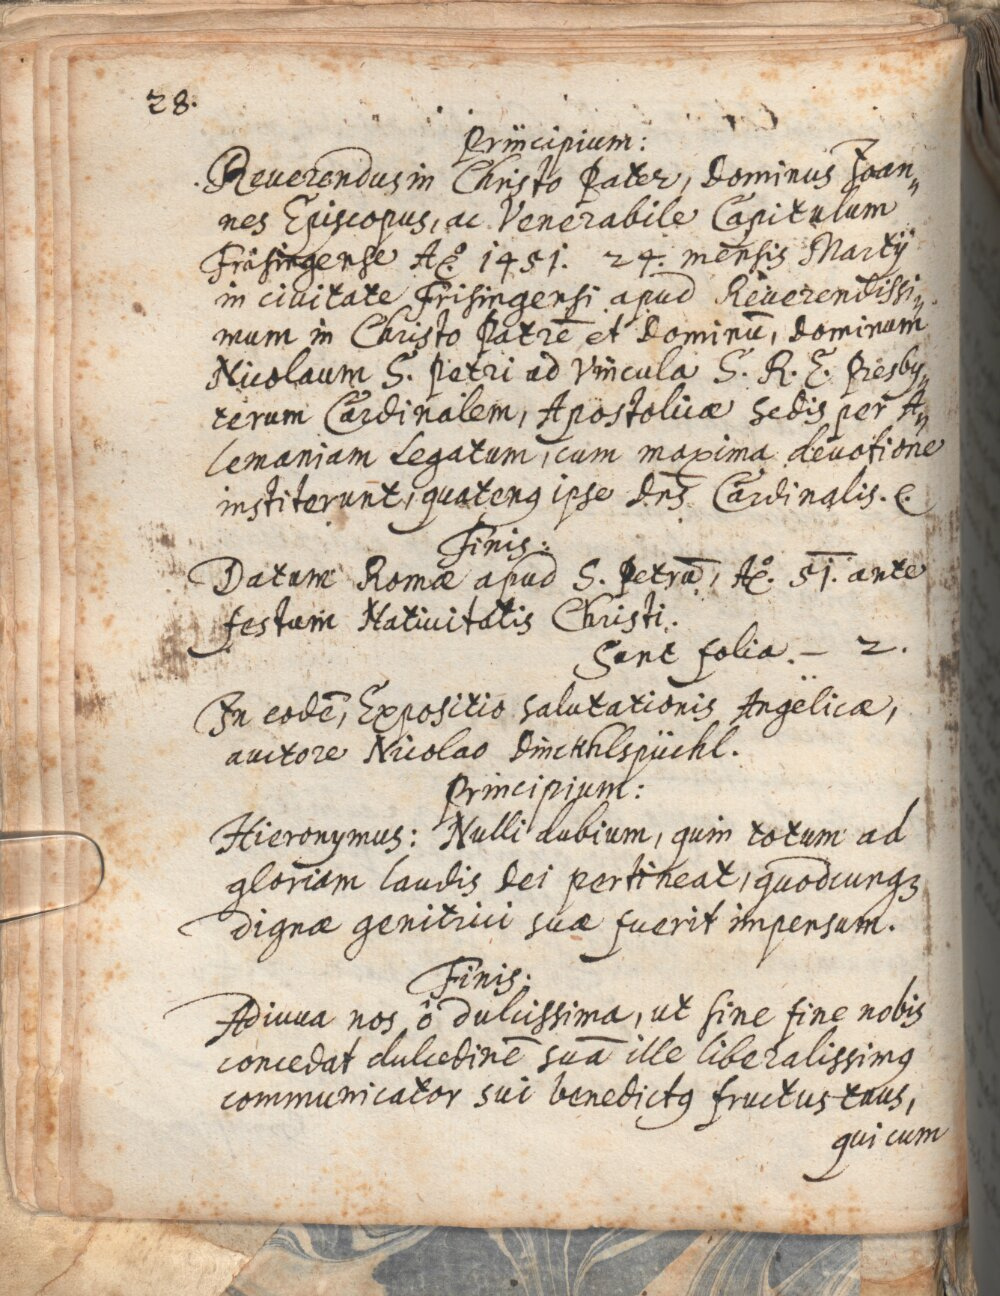 28.
Principium:
Reuerendus in Christo Pater, Dominus Joan„
nes Episcopus, ac Venerabile Capitulum
Frisingense Aº. 1451. 24. mensis Martÿ
in ciuitate Frisingensi apud Reuerendissi„
mum in Christo Patrē et Dominū, Dominum
Nicolaum S. Petri ad Vincula S. R. E. Presby„
terum Cardinalem, Apostolicæ Sedis per A„
lemaniam Legatum, cum maxima deuotione
institerunt, quatenꝰ ipse Dn̄s Cardinalis. &
Finis:
Datum Romæ apud S. Petrū, Aº. 51. ante
festum Natiuitatis Christi.
Sunt folia. – 2.
In eodē, Expositio salutationis Angelicæ,
auctore Nicolao Dinckhlspüchl.
Principium:
Hieronymus: Nulli dubium, quin totum ad
gloriam laudis Dei pertineat, quodcunqꝫ
dignæ genitrici suæ fuerit impensum.
Finis:
Adiuua nos ô dulcissima, ut sine fine nobis
concedat dulcedinē suā ille liberalissimꝰ
communicator sui benedictꝰ fructus tuus,
qui cum